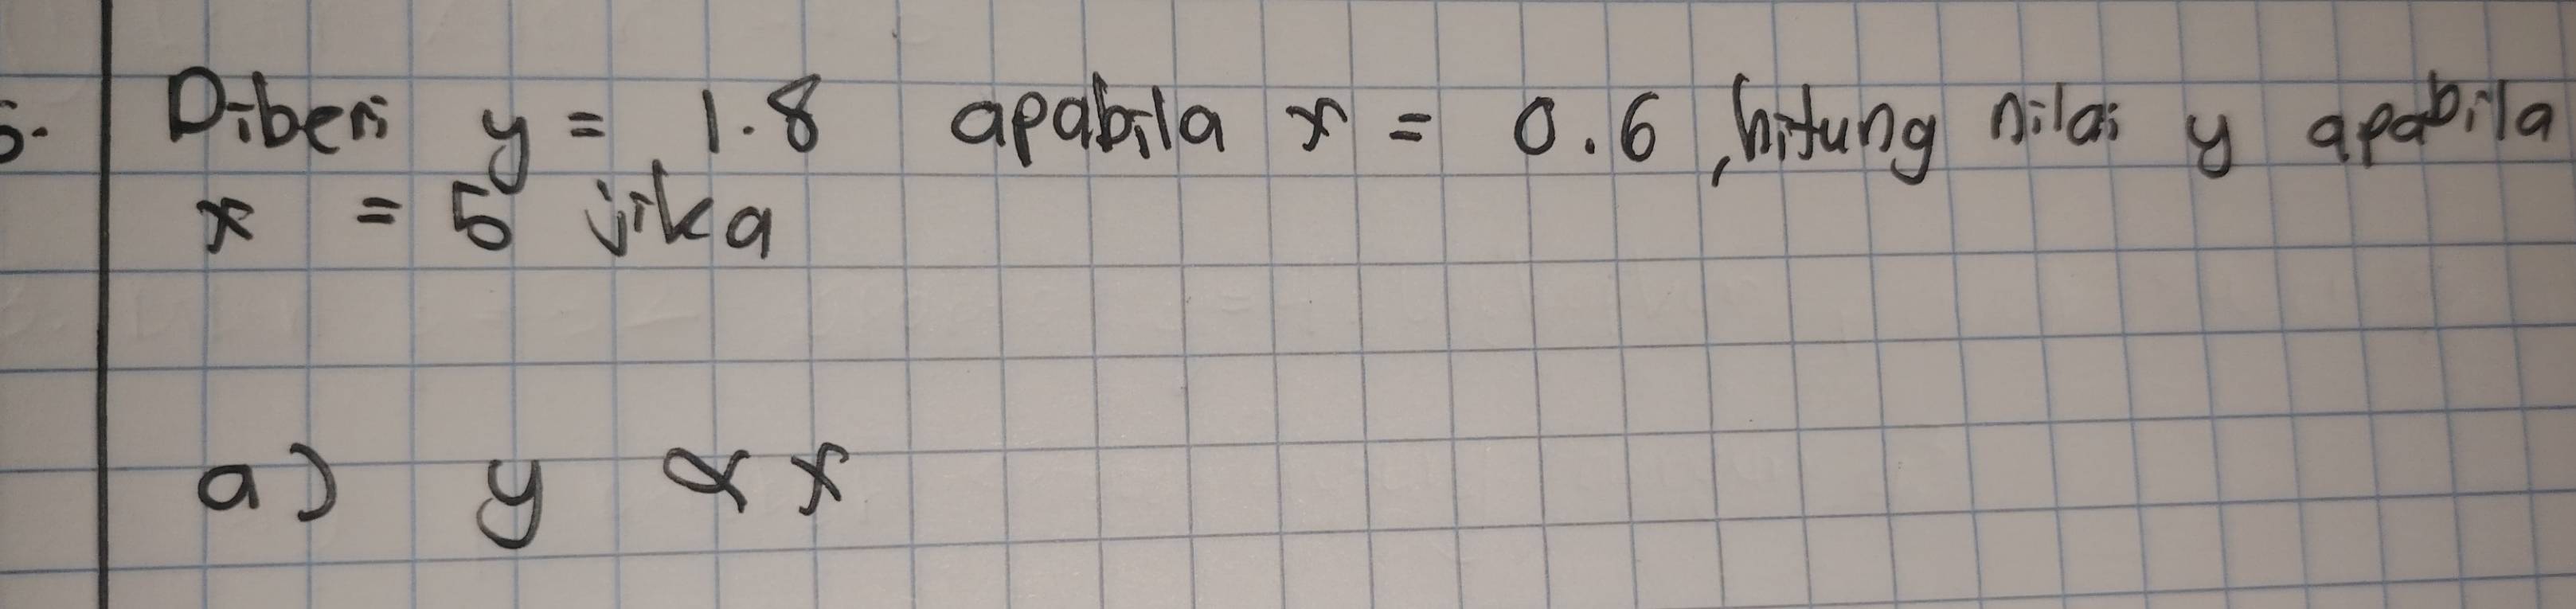 5. Diberi y = 1.8 apabila x = 0.6, hitung nilai y apabila
x = 5 jika
a) y ∝ x